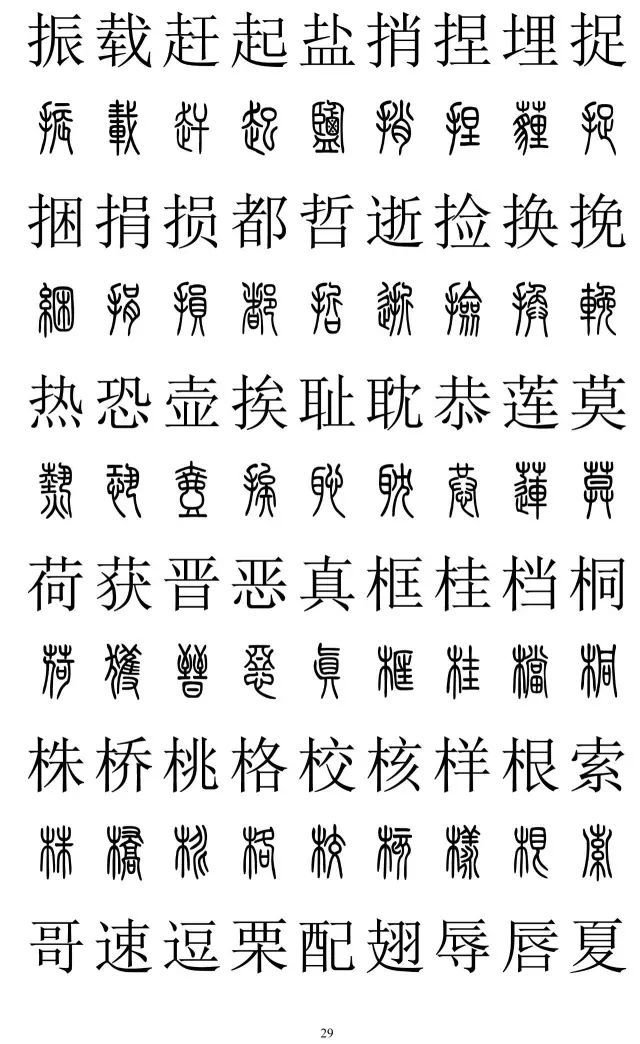 振载赶起盐捎捏埋捉
振載赶起鹽捎捏薶捉
捆捐损都哲逝捡换挽
綑捐損都哲逝撿換輓
热恐壶挨耻耽恭莲莫
熱恐壺挨恥耽恭蓮莫
荷获晋恶真框桂档桐
荷獲晉惡眞框桂檔桐
株桥桃格校核样根索
株橋桃格校核樣根索
哥速逗栗配翅辱唇夏
29